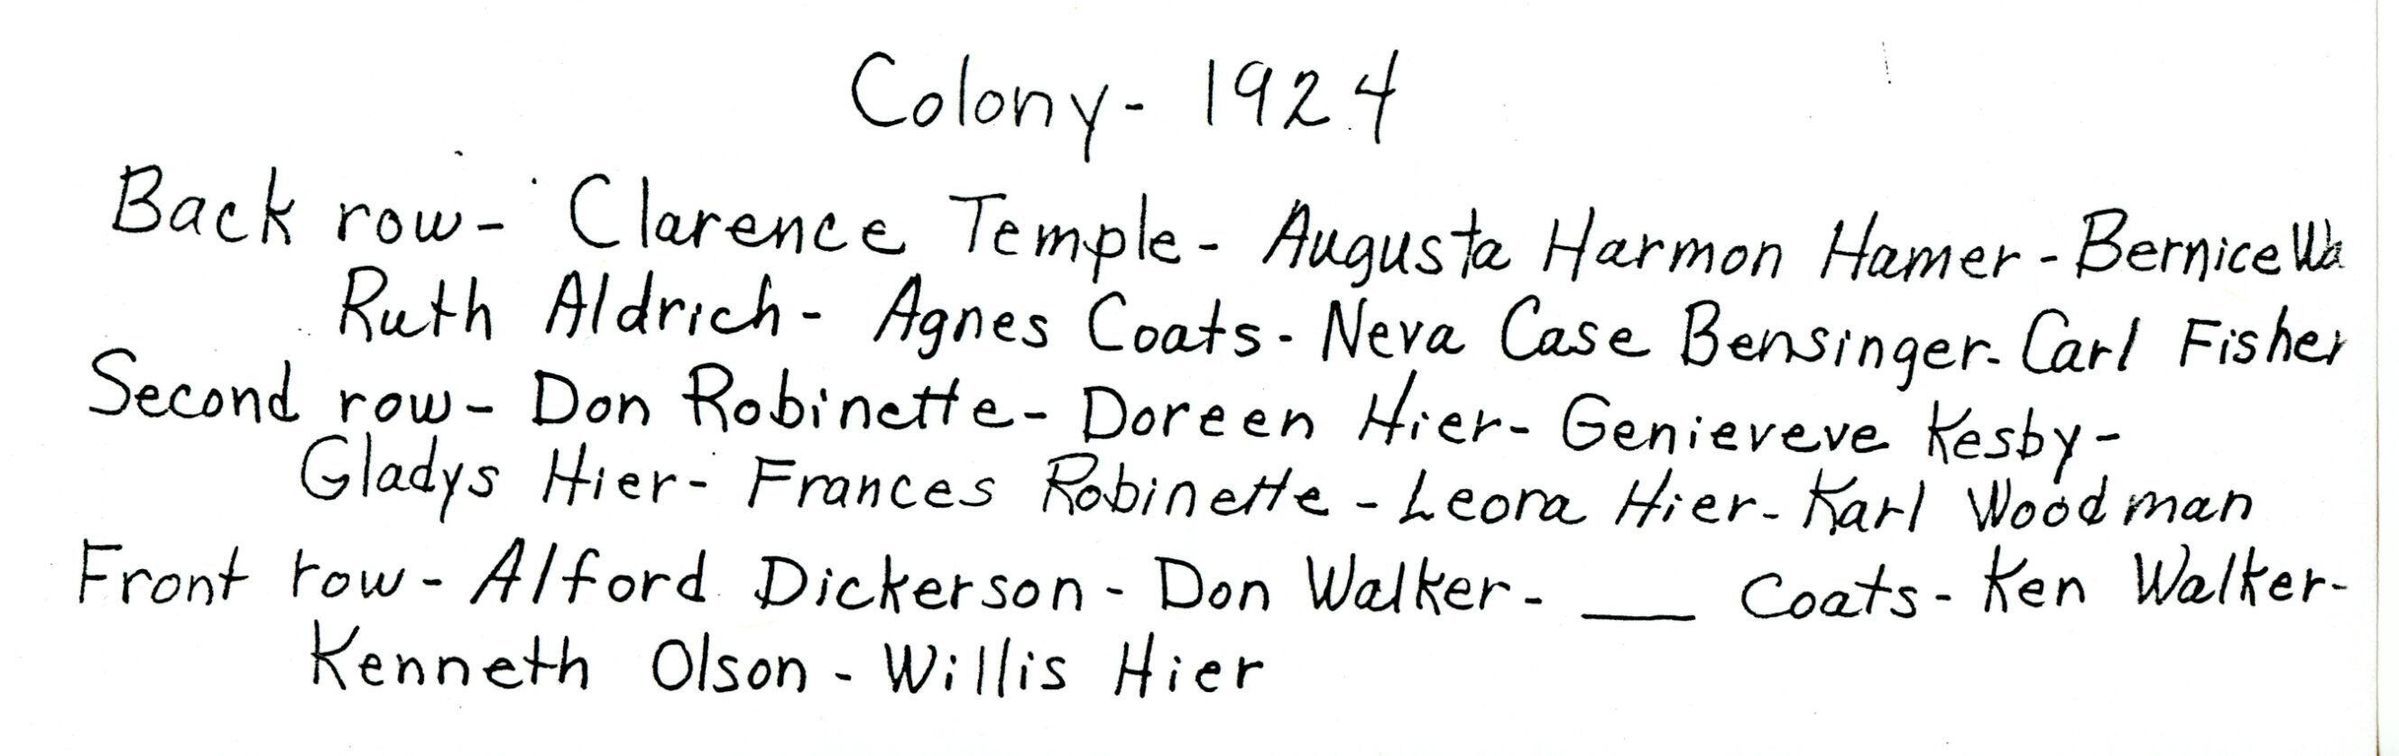 Colony- 1924
Back row- Clarence Temple- Augusta Harmon Hamer-Bernice
Ruth Aldrich- Agnes Coats- Neva Case Bensinger- Carl Fisher
Second row- Don Robinette- Doreen Hier- Genieveve Kesby-
Gladys Hier- Frances Robinette - Leora Hier- Karl Woodman
Front row- Alford Dickerson- Don Walker- ___ Coats- Ken Walker-
Kenneth Olson - Willis Hier